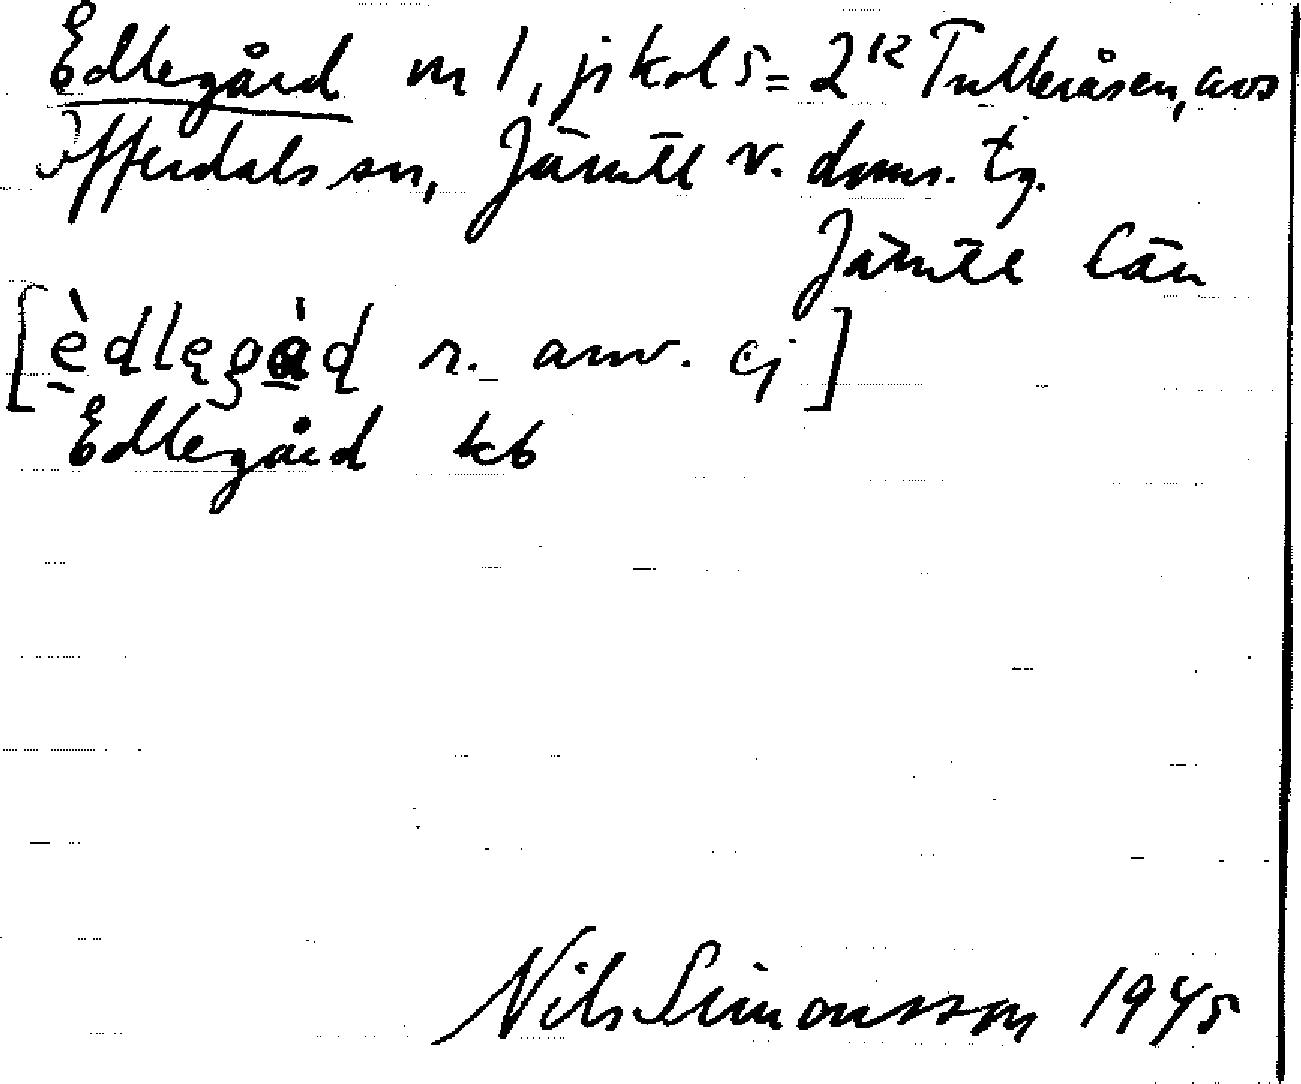 Edlegård m 1, jikol 5 = 2 12 Tulleråsen, avs
Offerdals sn, Jämtl v. doms. tg.
Jämtl län
[èdlegåd r. anv. ej]
Edlegård kb
Nils Simonsson 1945